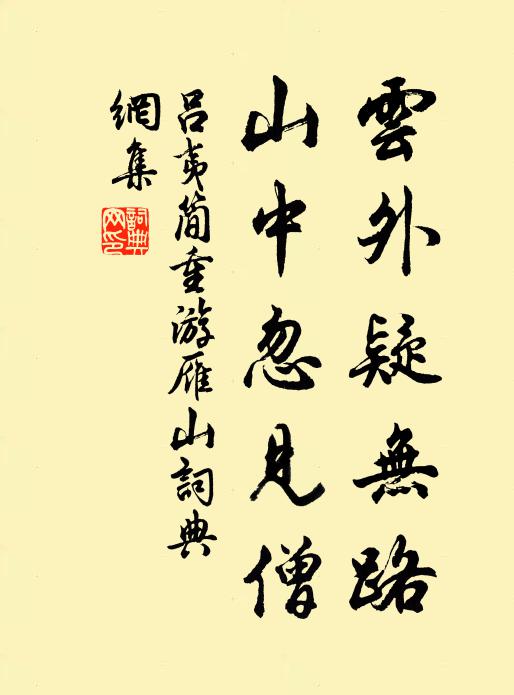 雲外疑無路
山中忽見僧
呂夷簡重游雁山詞典
網集
詞典
网印